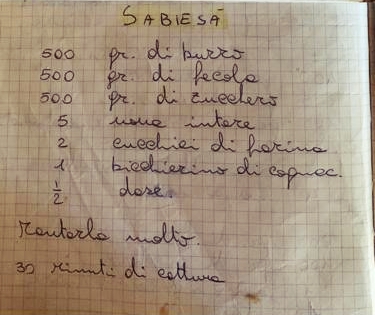 SABIESÀ
500 gr. di burro
500 gr. di fecola
500 gr. di zucchero
5 uova intere
2 cucchiai di farina
1 bicchierino di cognac.
1/2 dose.
Montarla molto.
30 minuti di cottura